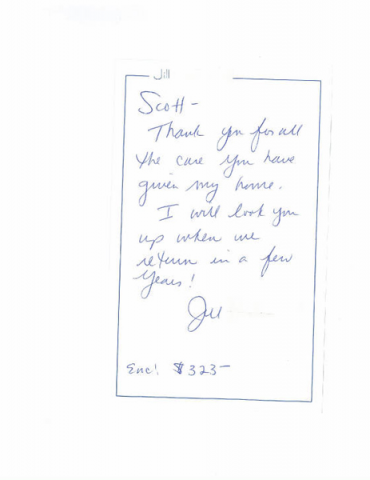 Jill
Scott -
Thank you for all
the care you have
given my home.
I will look you
up when we
return in a few
years!
Jill
Enc! $323-